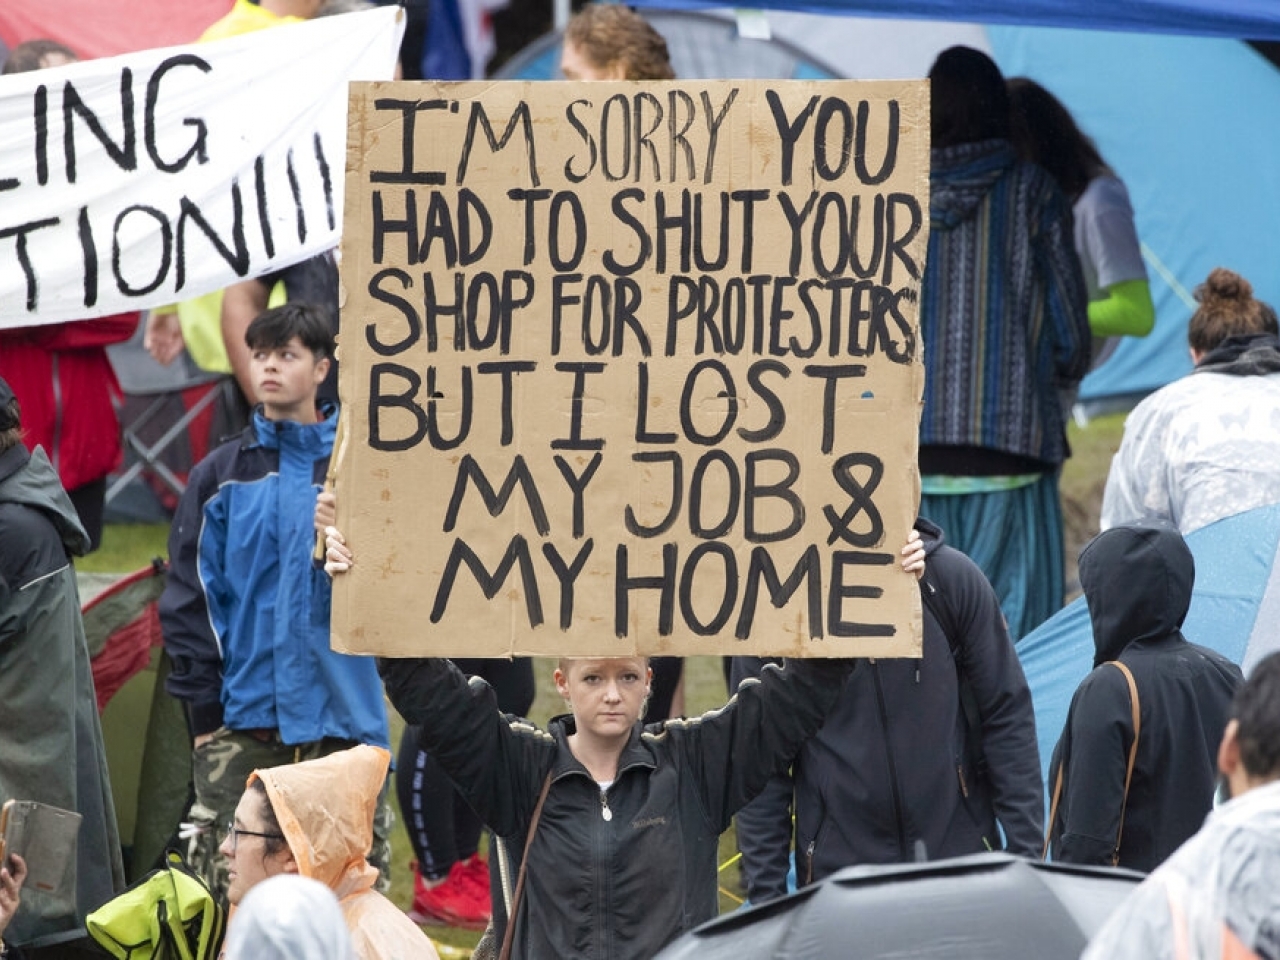 ING
TION!!!
I'M SORRY YOU
HAD TO SHUT YOUR
SHOP FOR PROTESTERS
BUT I LOST
MY JOB &
MY HOME